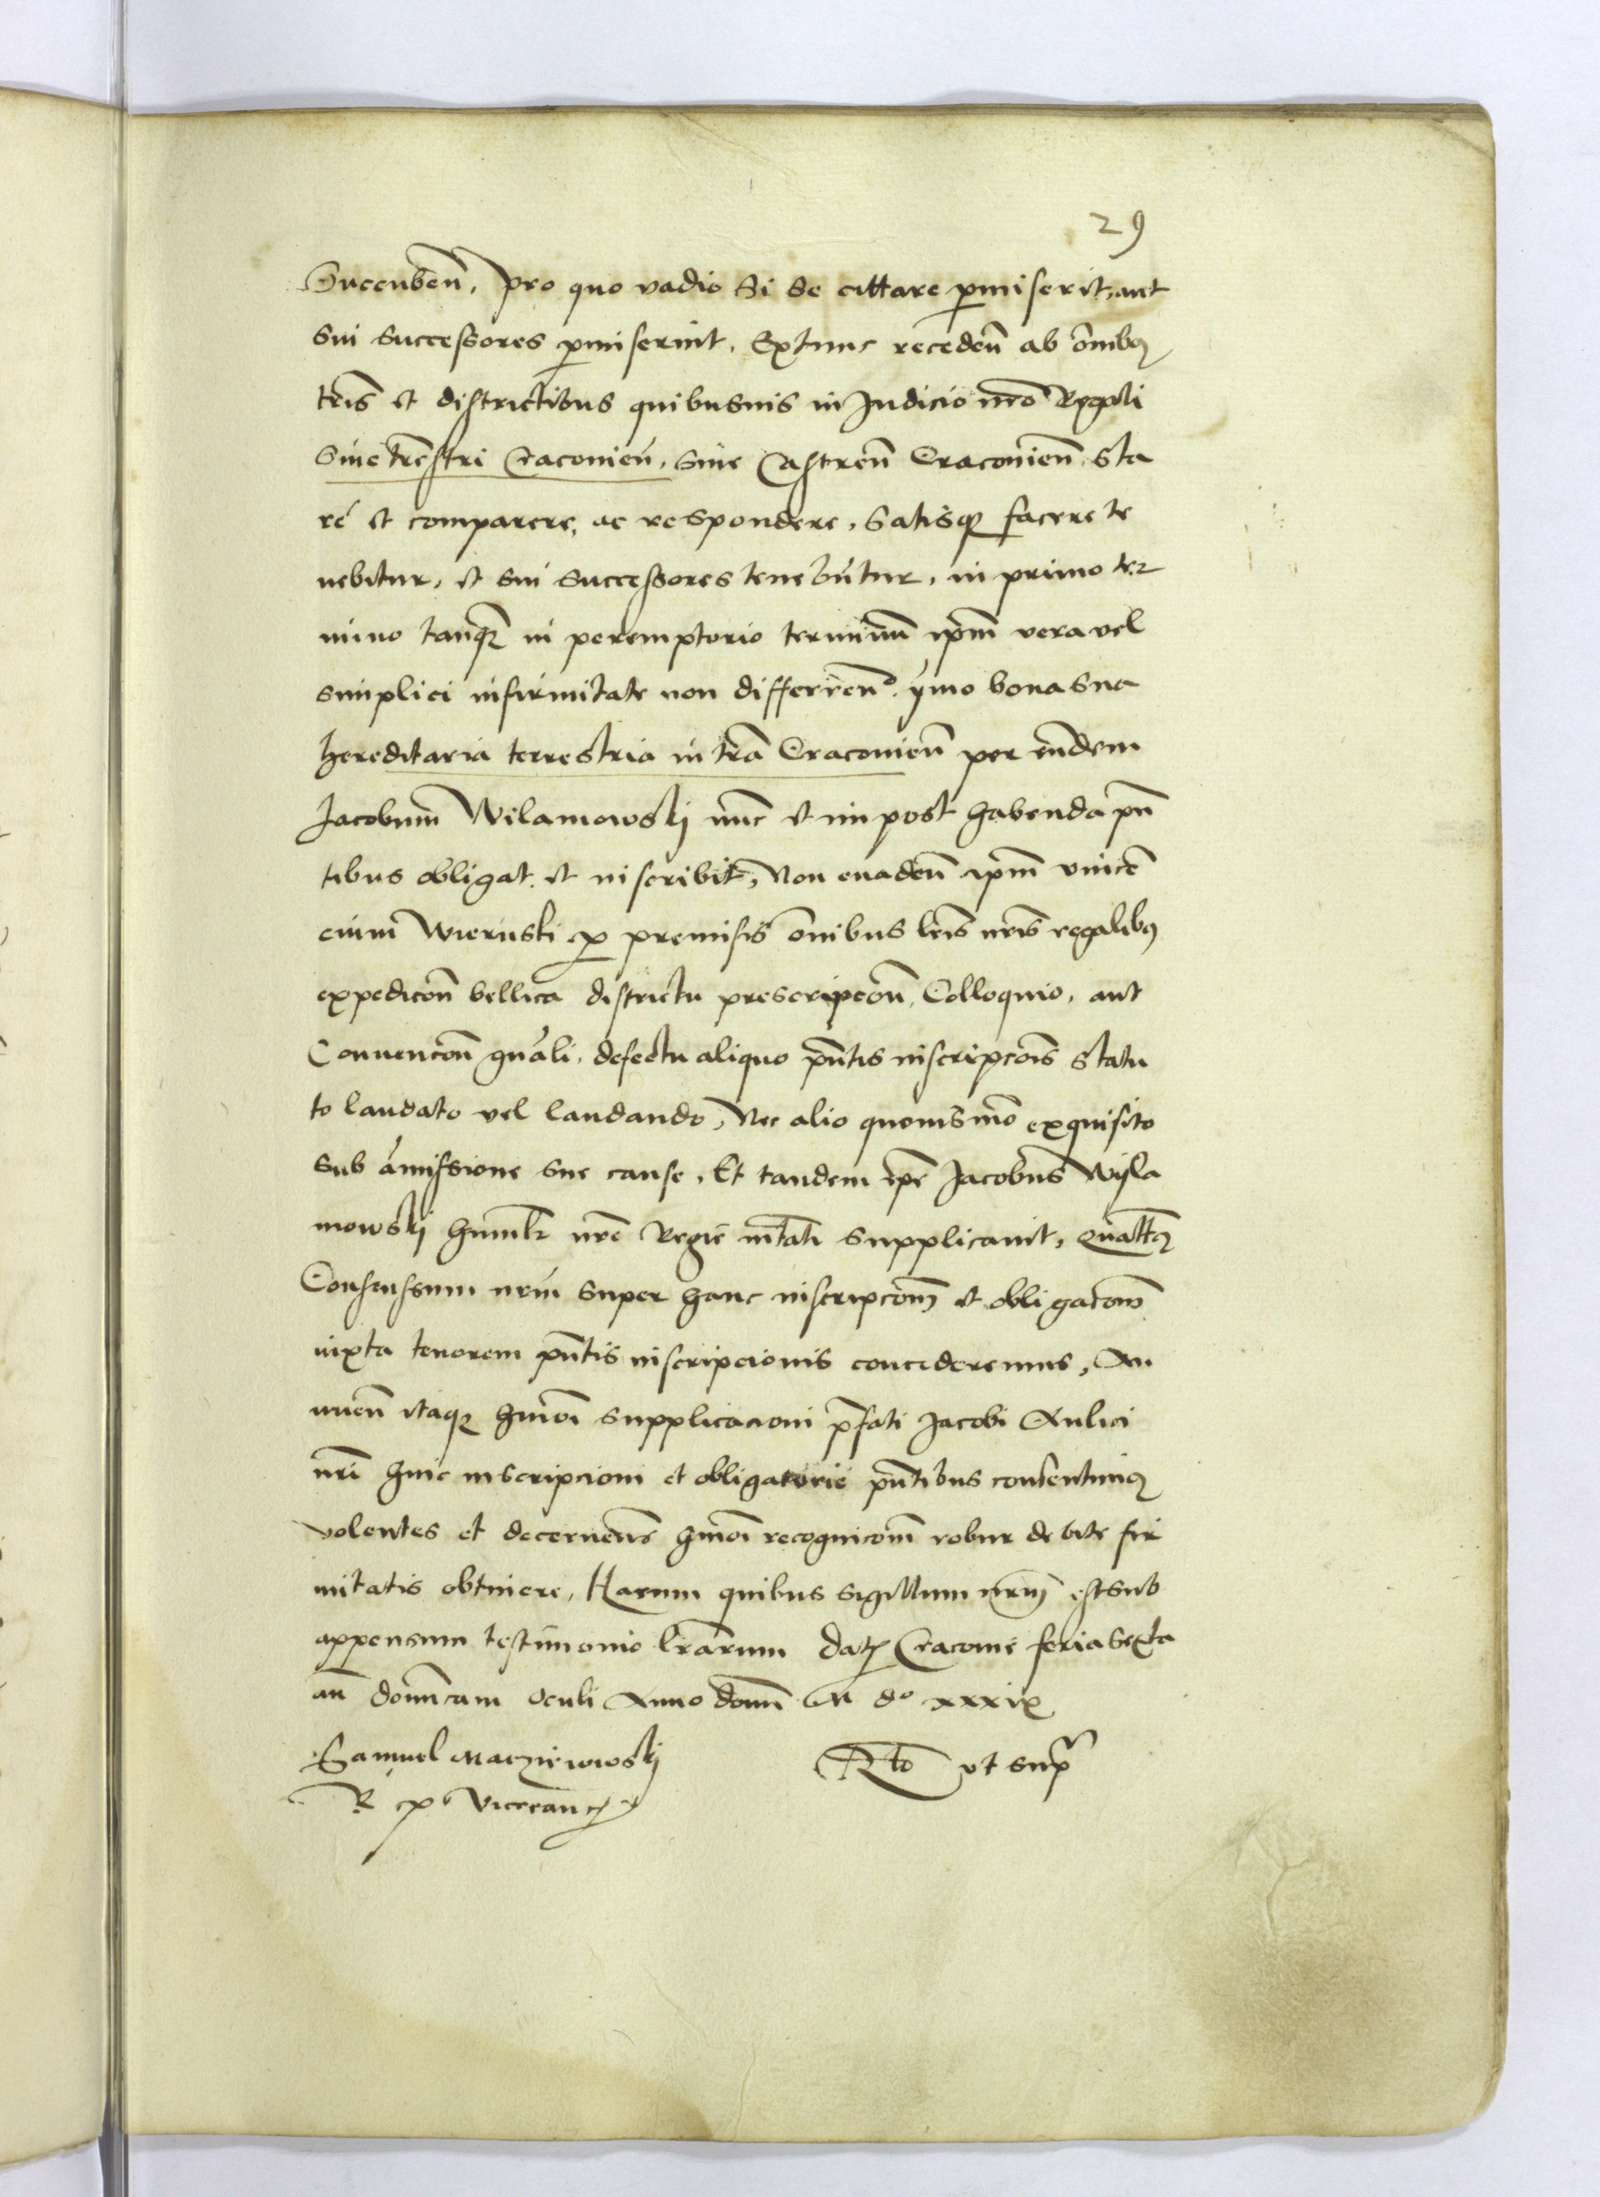 29
Succuben̄, pro quo vadio Si se cittare p̱miserit, aut
sui successores p̱miserint, Extunc receden̄ ab om̄ib9
tr̄is et districtibus quibusuis in Judicio nr̄o Regali
siue tr̄estri Cracouien̄, siue Castren̄ Cracouien̄ sta
re et comparere, ac respondere, satisq3 facere te
nebitur, et sui successores tenebūtur, in primo ter
mino tanq̄3 in peremptorio terminū ip̄m vera vel
simplici infirmitate non differren̄. ymo bona sua
hereditaria terrestria in tr̄a Cracouien̄ per eūdem
Jacobum Wilamowskij nūc et in post habenda pn̄
tibus obligat et inscribit, Non euaden̄ ip̄m vincē
cium Wieruski ꝓ premis̄is om̄ibus lr̄is nr̄is regalib9
expedicōn̄ bellica districtu prescripcōn̄, Colloquio, aut
Conuencōn̄ gn̄ali, defectu aliquo pn̄tis inscripcōis statu
to laudato vel laudando, Nec alio quouismō exquisito
sub amissione sue cause, Et tandem ip̄e Jacobus Wÿla
mowskij humilr̄ nr̄e Regie mt̄ati supplicauit, Quatt̄9
Consensum nr̄um super hanc inscripcōm̄ et obligacōm̄
iuxta tenorem pn̄tis inscripcionis concederemus, An
nuen̄ itaq3 hm̄oi supplicacioni p̄fati Jacobi Aulici
nr̄i huic inscripcioni et obligatorie pn̄tibus consentim9
volentes et decernen̄s hm̄oi recognicōm̄ robur debite fir
mitatis obtinere, Harum quibus sigillum nr̄um est sub
appensum testimonio lr̄arum Dat̄ Cracouie feria sexta
an̄ domīcam oculi Anno domī M do xxxix
Samuel Macziewowskij Rlō vt sup̄
R P Vicecanc̄